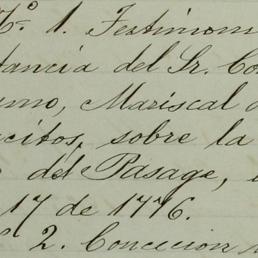 Nº 1. Testimon
tancia del Sr. Co
mo, Mariscal d
citos, sobre la
del Pasage, e
17 de 1776.
2. Concecion